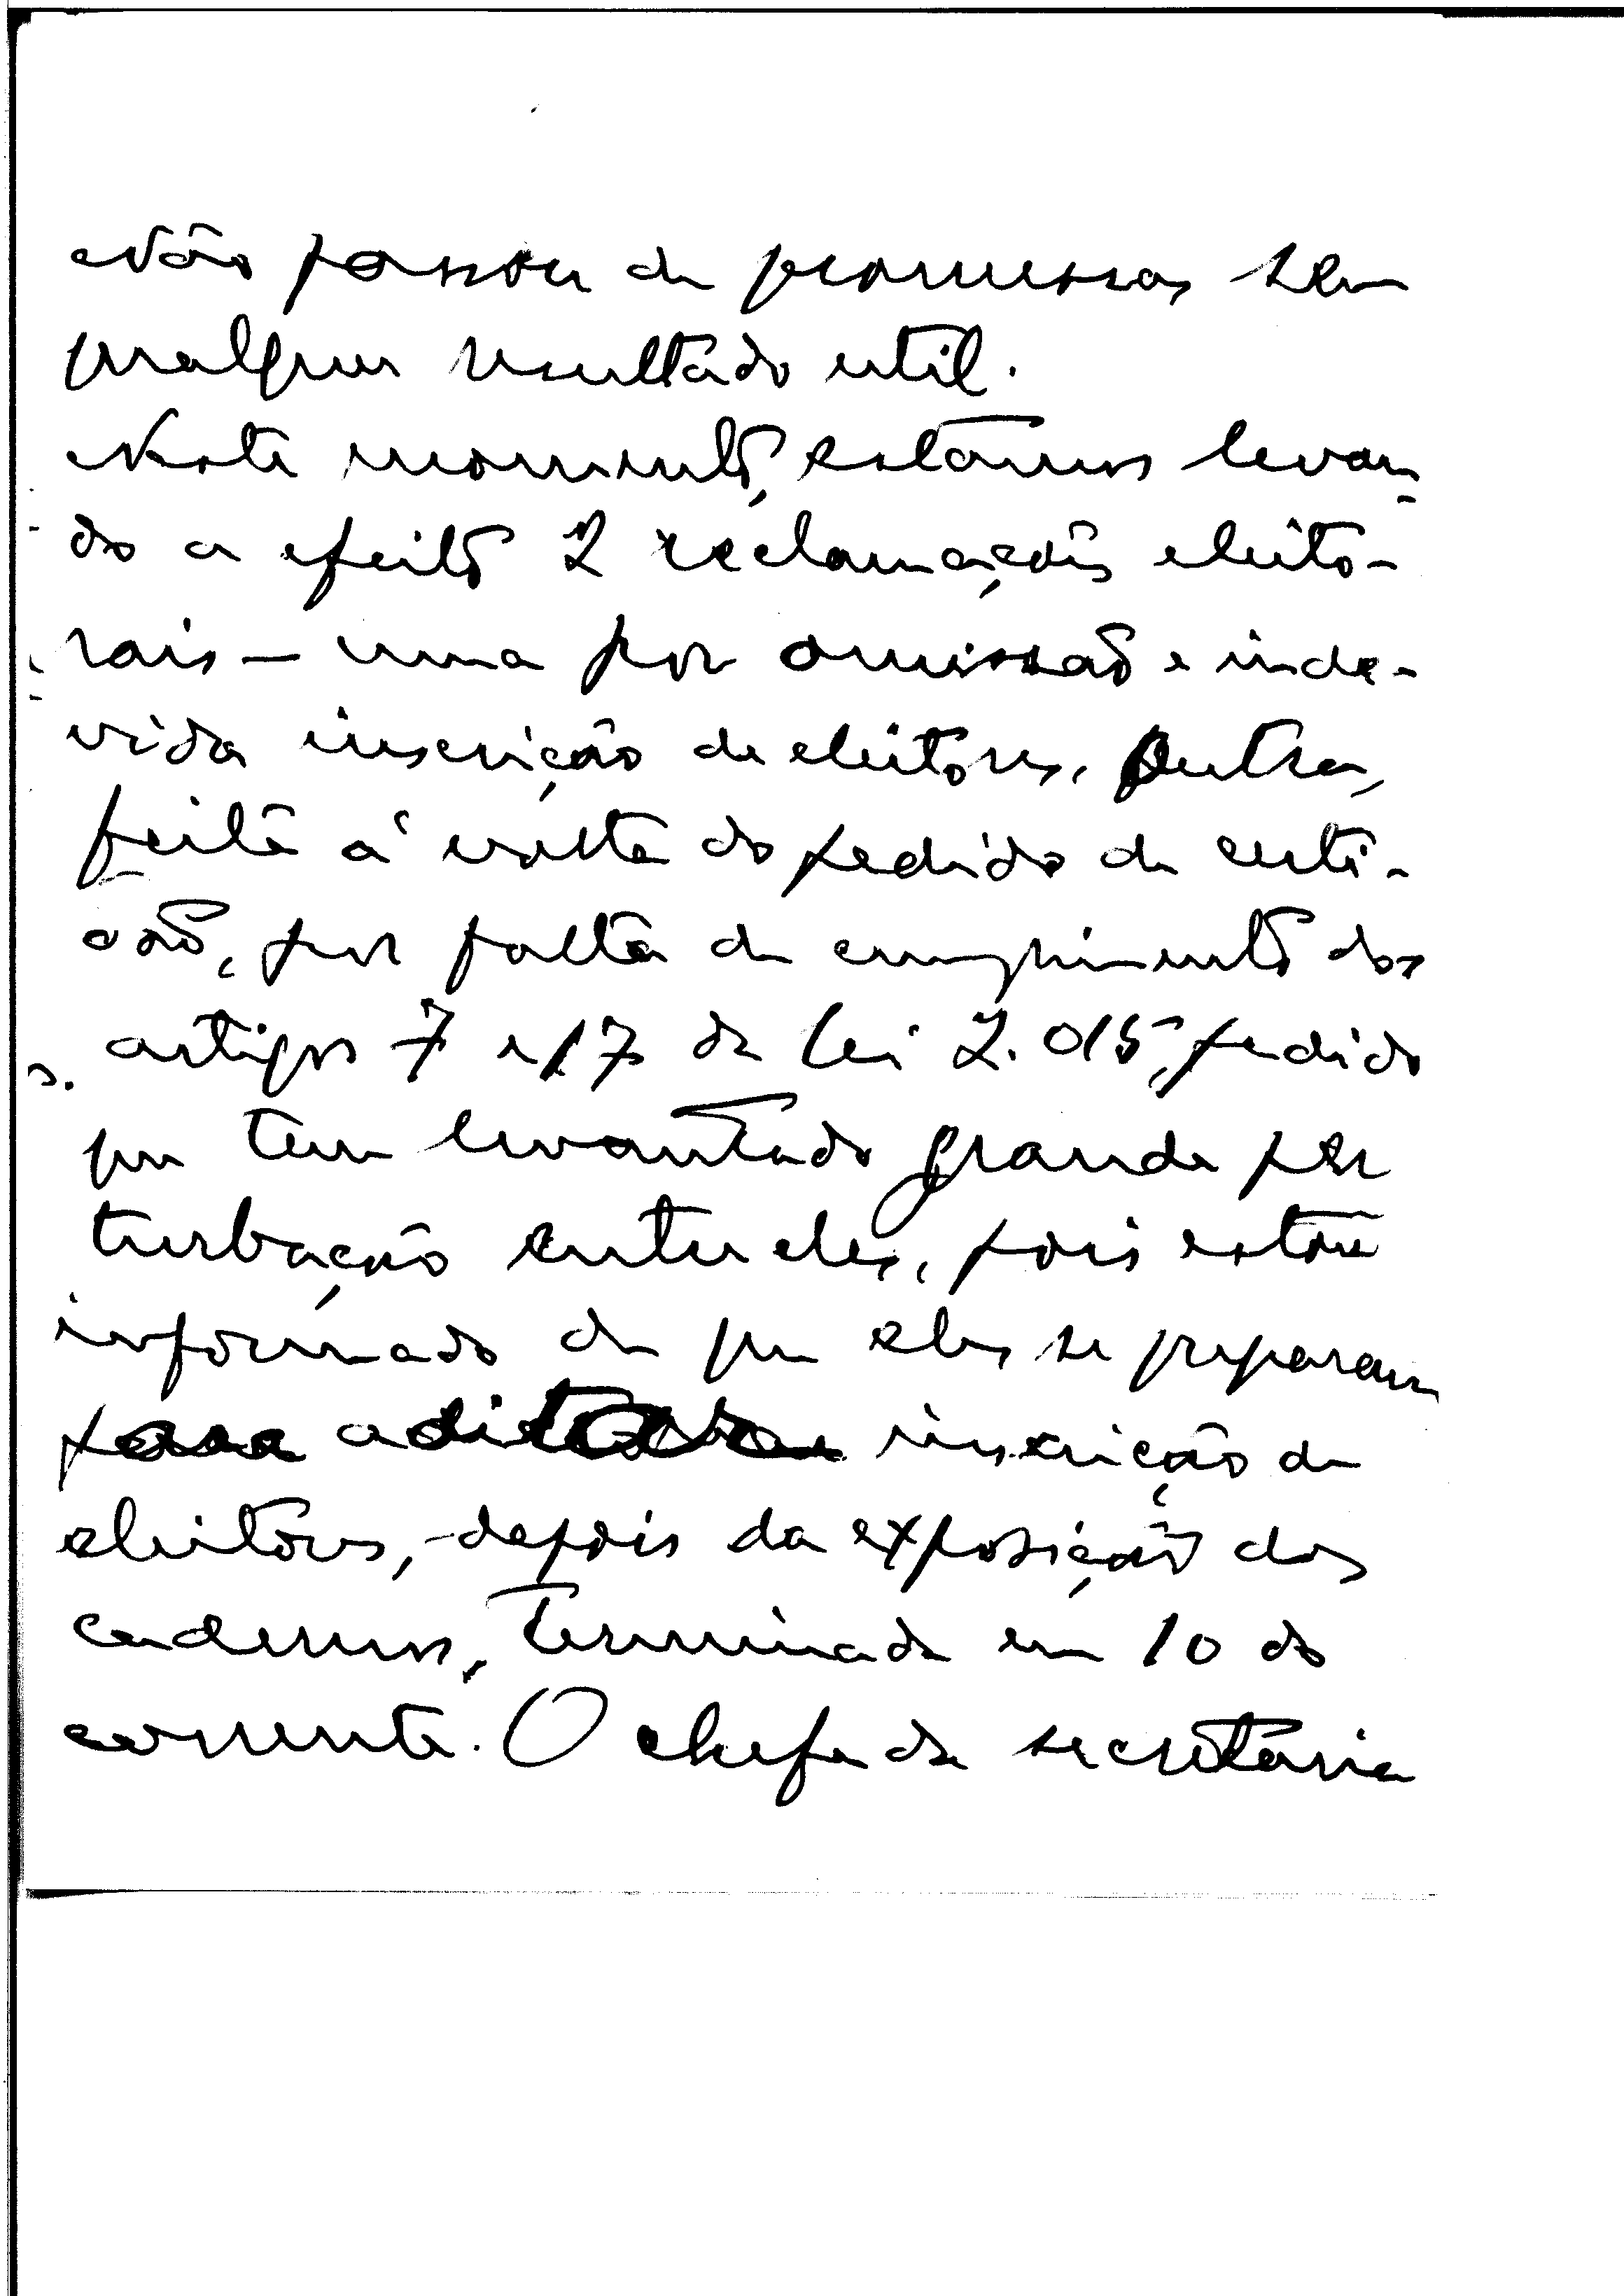 Não passou de promessas sem
qualquer resultado util.
Neste momento, estamos levan-
do a efeito 2 reclamações eleito-
rais — uma por omissão e inde-
vida inscrição de eleitores. Outra,
feita à volta do pedido de certi-
dão, por falta de cumprimento dos
artigos 7 e 17 da lei 2.015, pedido
que tem levantado grande per
turbação entre eles, pois estou
informado de que eles se preparam
para inscrição de
eleitores, depois da exposição dos
cadernos, terminada em 10 do
corrente. O chefe da secretaria